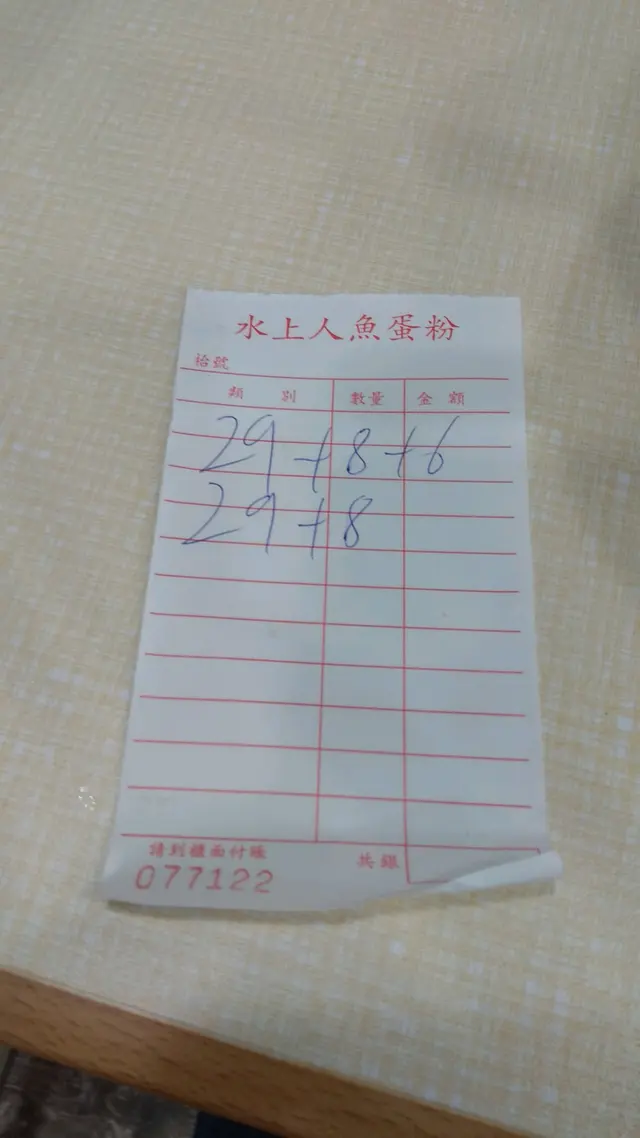 水上人魚蛋粉
枱號
類別 數量 金額
29+8+6
29+8
請到櫃面付賬
077122
共銀